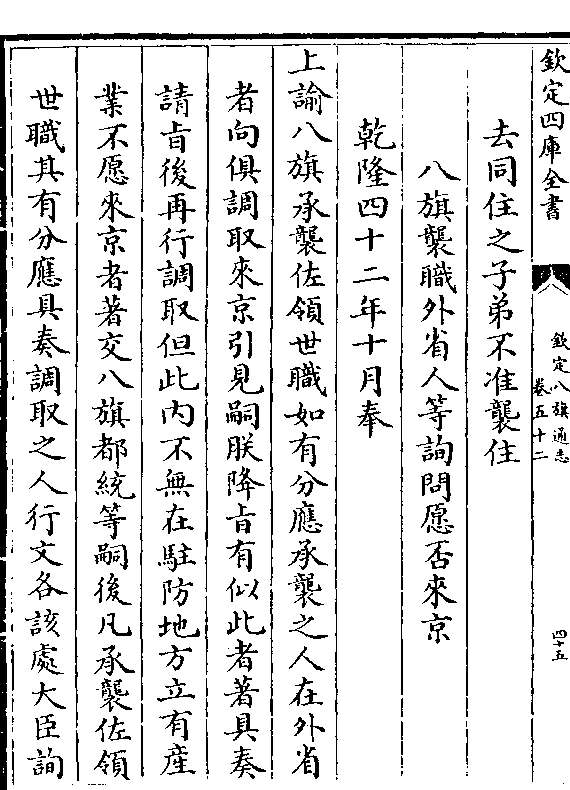 欽定四庫全書
欽定八旗通志
卷五十二
四十五
去同住之子弟不准襲住
八旗襲職外省人等詢問愿否來京
乾隆四十二年十月奉
上諭八旗承襲佐領世職如有分應承襲之人在外省
者向俱調取來京引見嗣朕降旨有似此者著具奏
請旨後再行調取但此内不無在駐防地方立有產
業不愿來京者著交八旗都統等嗣後凡承襲佐領
世職其有分應具奏調取之人行文各該處大臣詢